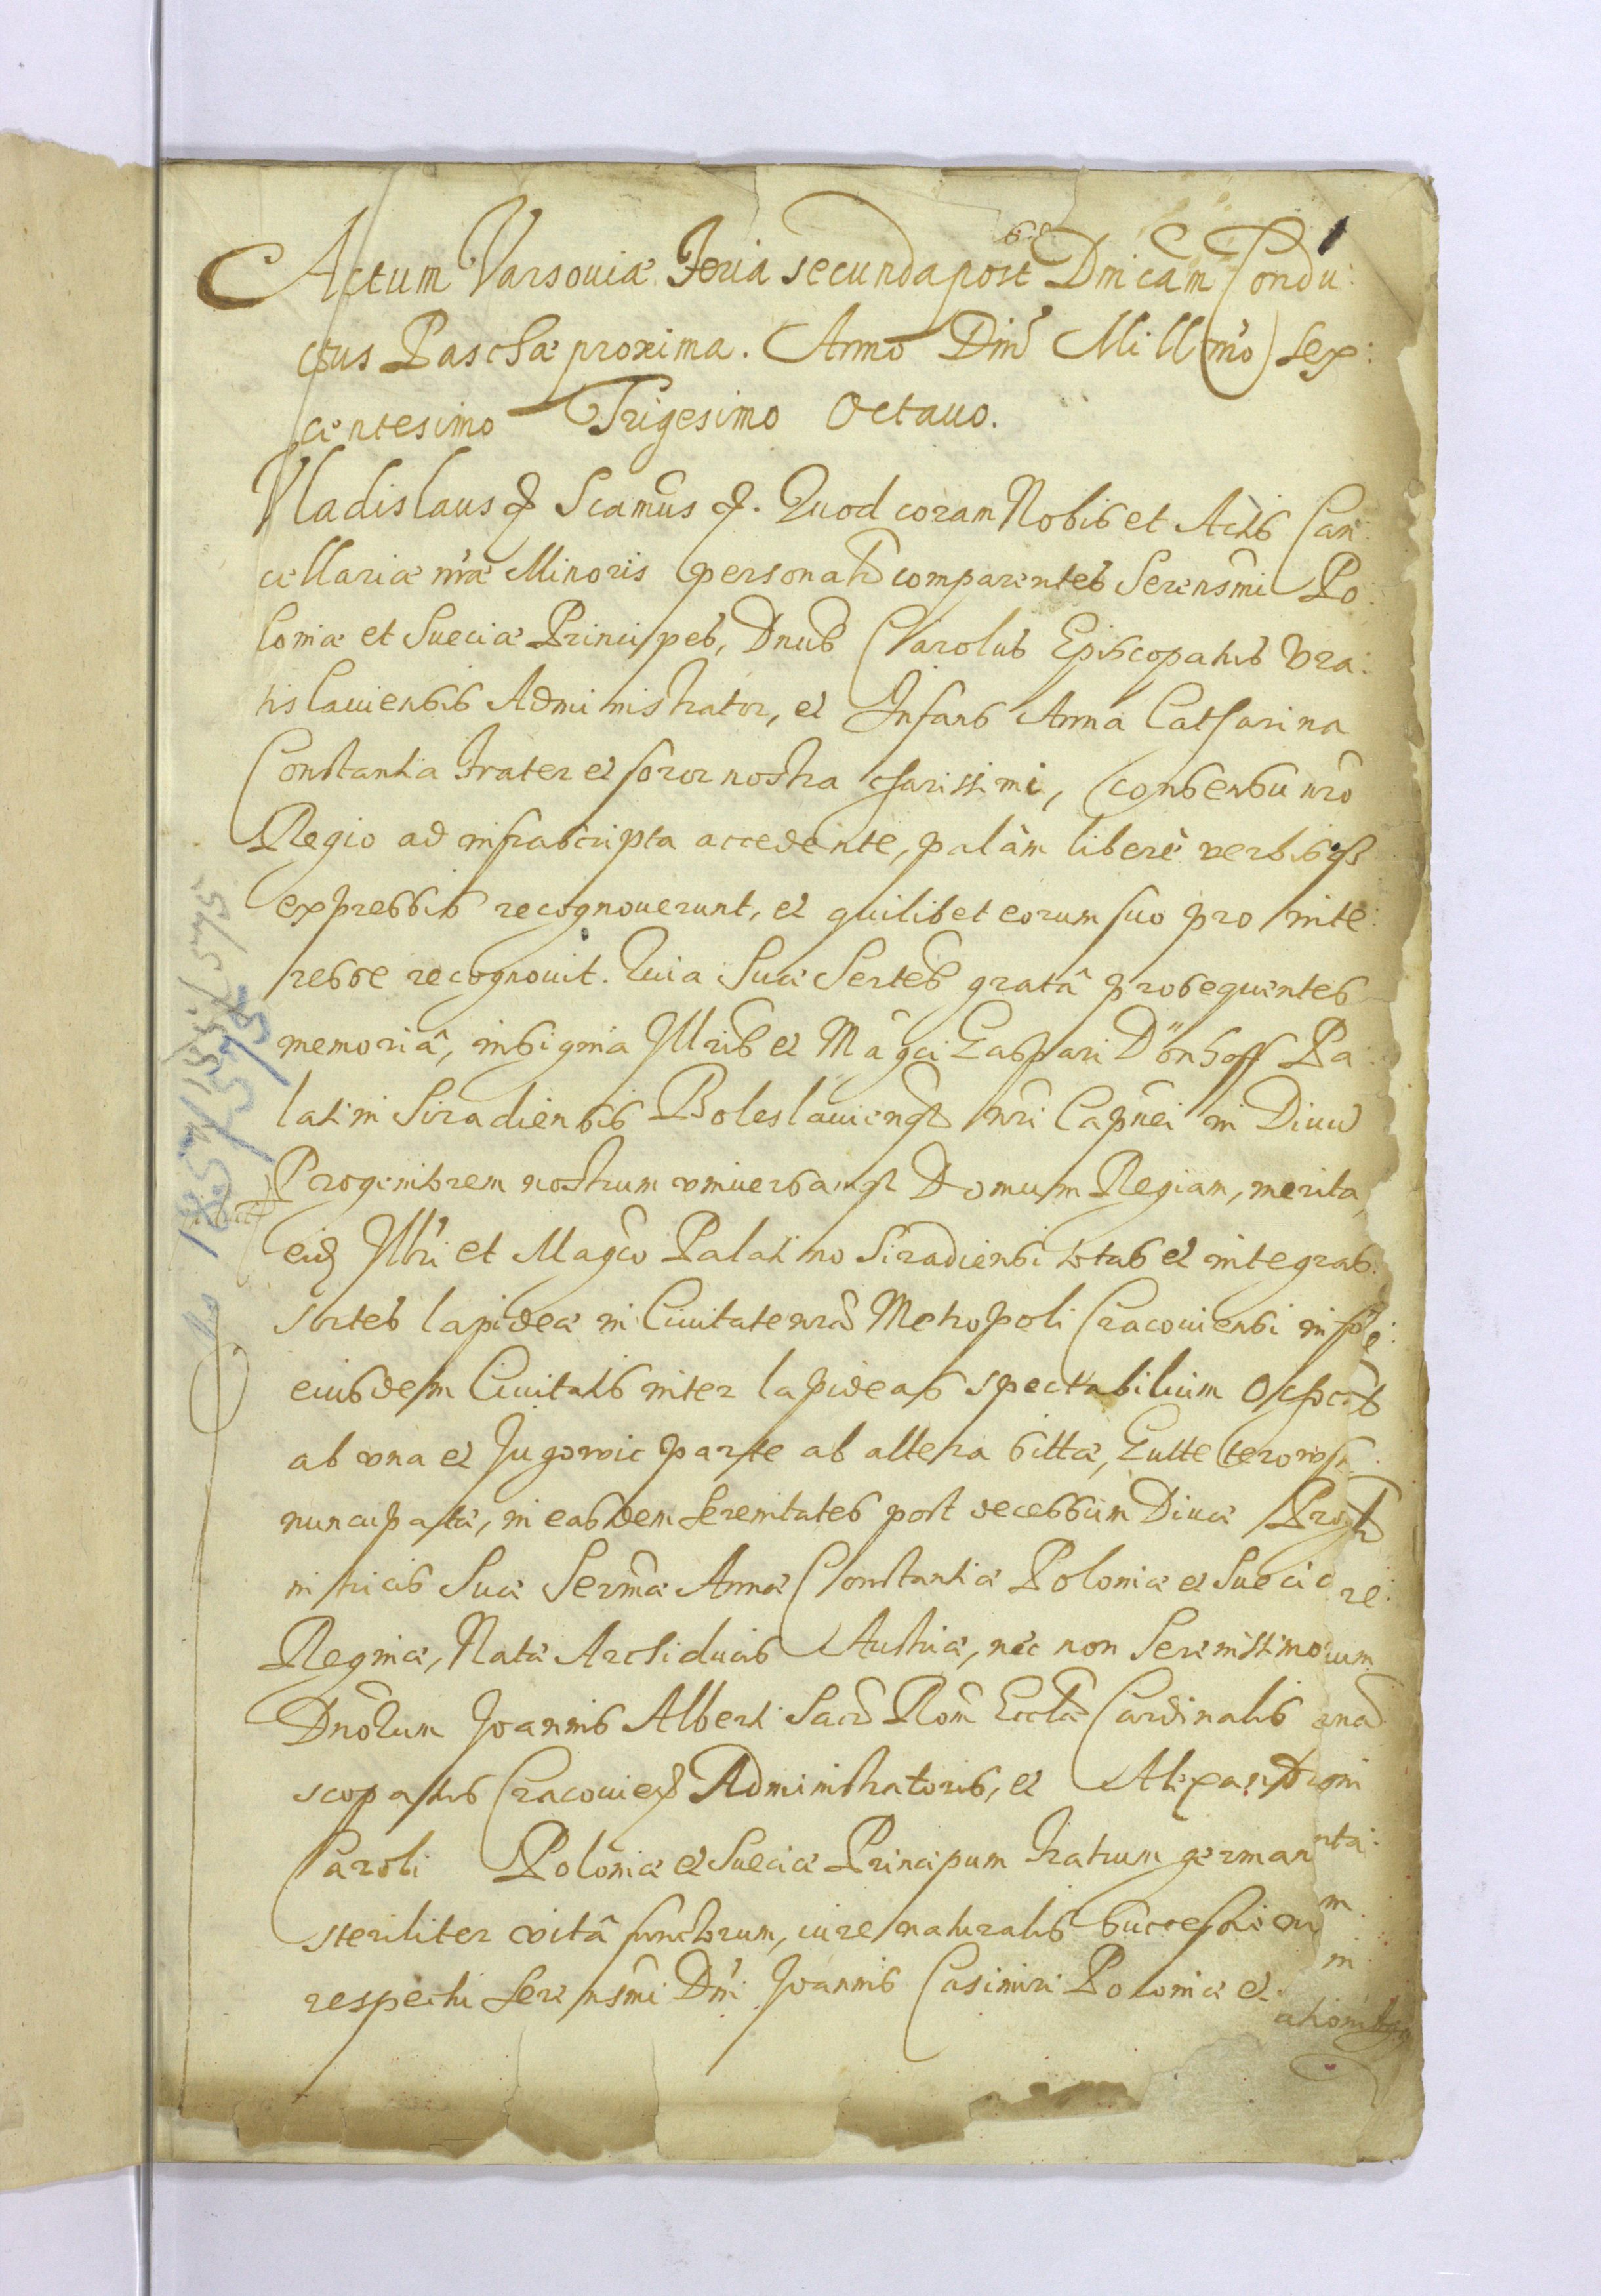 1
Actum Varsouiæ Feria secunda post Dnicam Condu:
ctus Paschæ proxima. Anno Dni Mill(mo) sex:
centesimo Trigesimo Octauo.
Vladislaus & Scamus &. Quod coram Nobis et Actis Can:
cellariæ nræ Minoris personatr comparentes Serensmi Po:
loniæ et Sueciæ Principes, Dnus Carolus Episcopatus Vra:
tislauiensis Administrator, et Infans Anna Catharina
Constantia Frater et soror nostra charissimi, consensu nro
Regio ad infrascripta accedente, palàm liberè verbisqz
expressis recognouerunt, et quilibet eorum suo pro inte:
resse recognouit. Quia Suæ Sertes gratâ prosequentes
memoriâ, insignia Illris et Magci Caspari Dönhoff Pa:
latini Siradiensis Boleslauiensqz nri Capnei in Diuu
Progenitorem nostrum vniuersamqz Domum Regiam, merita,
eidz Illri et Magco Palatino Siradiensi totas et integras
sortes lapideæ in Ciuitate nra Metropoli Cracouiensi in
eiusdem Ciuitatis inter lapideas spectabilium
ab vna et Jugowic parte ab altera sittæ,
nuncupatæ, in easdem serenitates post decessum Diuæ
nitricis Suæ Sermæ Annæ Constantiæ Poloniæ et Sueciæ
Reginæ, Natæ Archiducis Austriæ, nec non Serenissimorum
Dnorum Joannis Alberti Sacr Rom Eccla Cardinalis
scopatus Cracouien Administratoris, et Alexandri
Caroli Poloniæ et Sueciæ Principum fratrum german
steriliter vitâ functorum, iure naturalis successionis
respectu Serensmi Dni Joannis Casimiri Poloniæ et